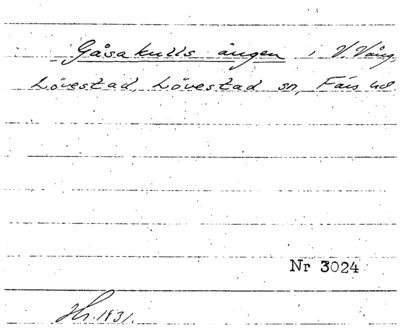 Gåsakulls ängen i V. Vång,
Lövestad, Lövestad sn, Färs hd.
Nr 3024
Hr. 1931.